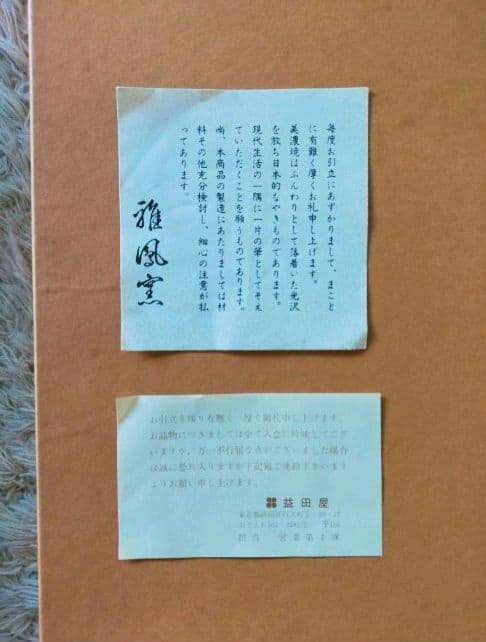 毎度お引立にあずかりまして、まこと
に有難く厚くお礼申し上げます。
美濃焼はふんわりとして落着いた光沢
を放ち日本的なやきものであります。
現代生活の一隅に一片の華としてそえ
ていただくことを願うものであります。
尚、本商品の製造にあたりましては材
料その他充分検討し、細心の注意が払
ってあります。
雅風窯
お引立を賜り有難く 厚く御礼申し上げます。
お品物につきましては全て入念に吟味してござ
いますが、万一不行届な点がございました場合
は誠に恐れ入りますが下記宛ご連絡下さいます
ようお願い申し上げます。
益田屋
担当 営業第4課